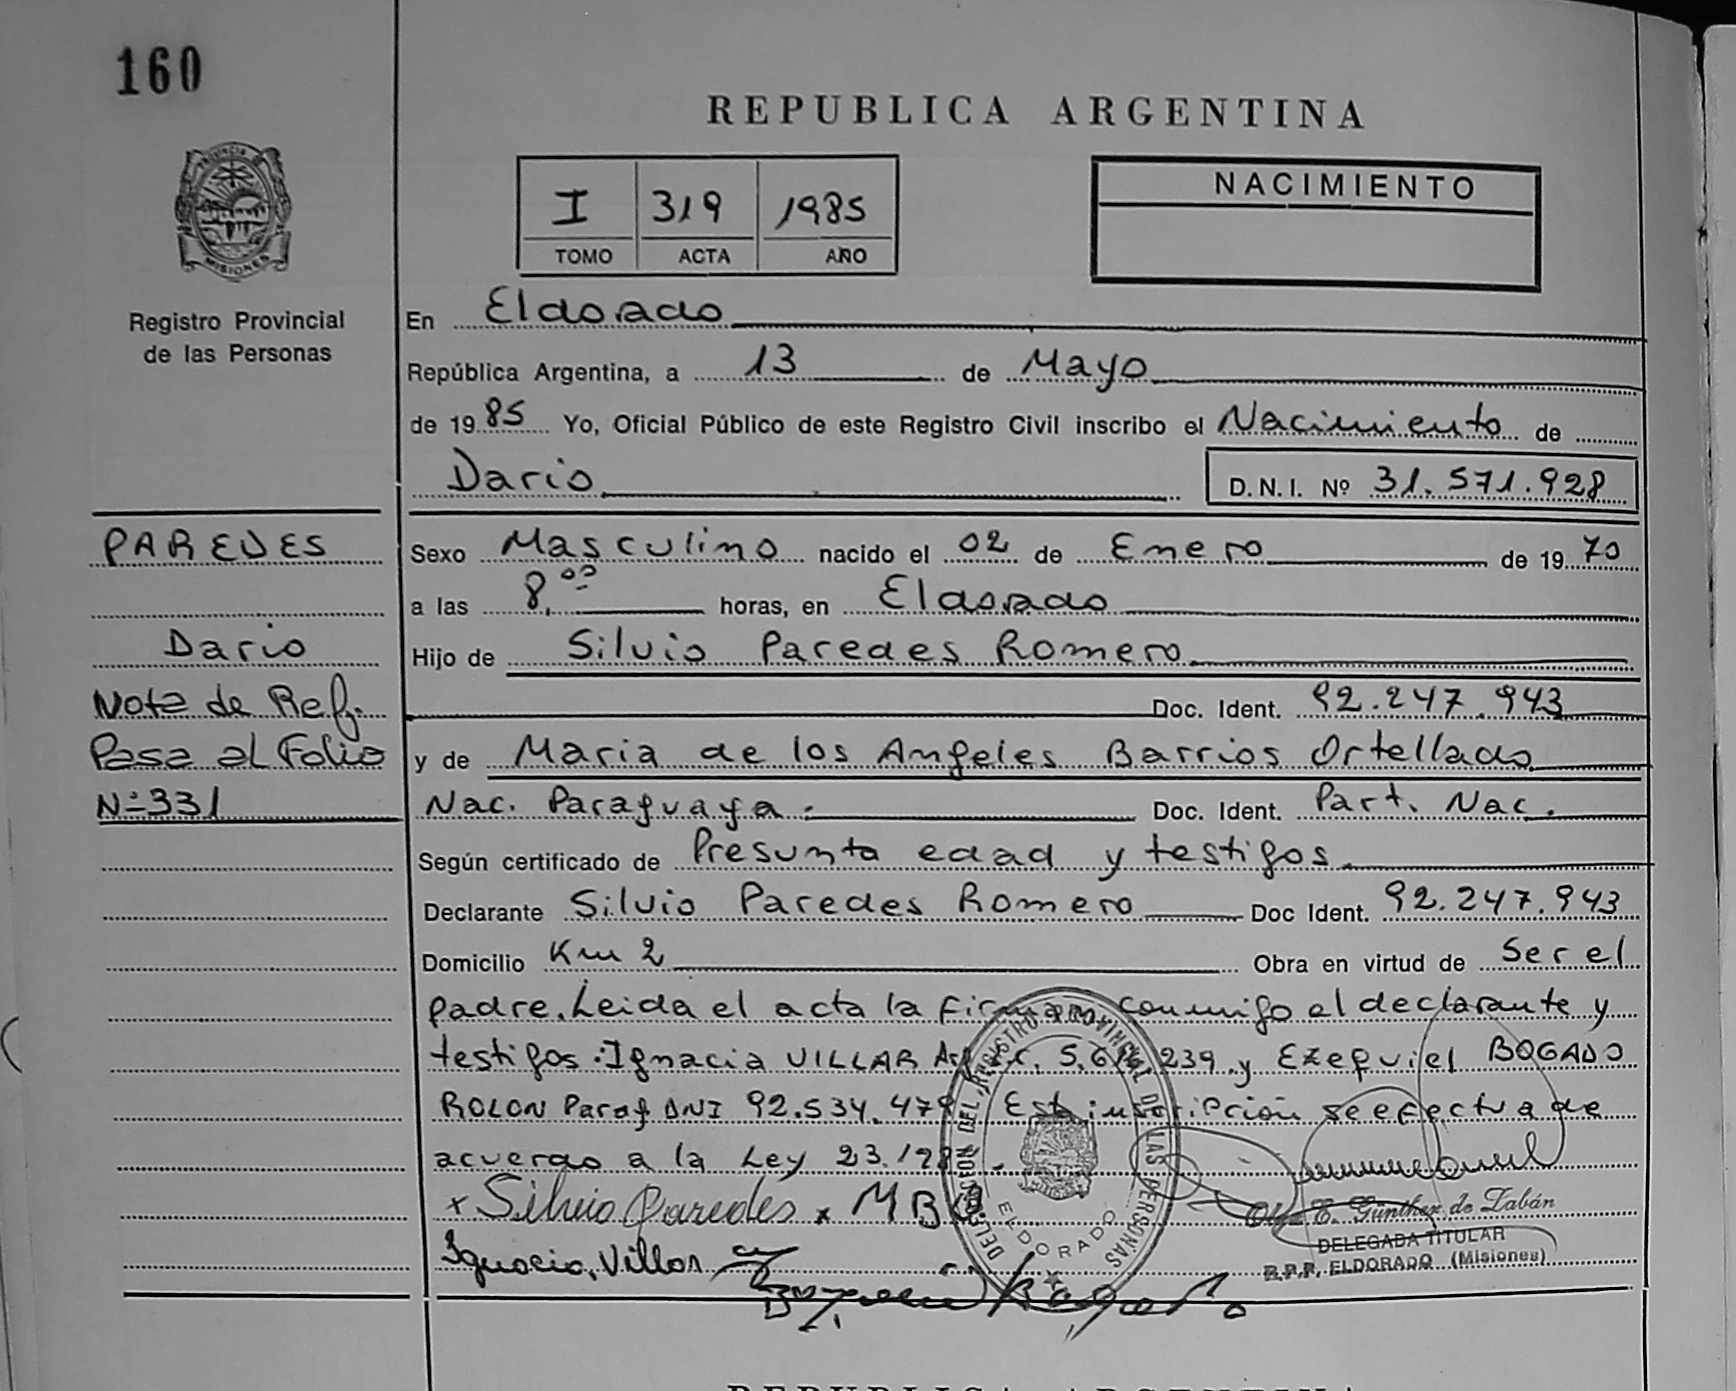 160
REPUBLICA ARGENTINA
PROVINCIA DE
MISIONES
Registro Provincial
de las Personas
I 319 1985
TOMO ACTA AÑO
NACIMIENTO
En Eldorado
República Argentina, a 13 de Mayo
de 1985 Yo, Oficial Público de este Registro Civil inscribo el Nacimiento de
Dario
D.N.I. Nº 31.571.928
PAREDES
Dario
Nota de Ref.
Pasa al Folio
Nº 331
Sexo Masculino nacido el 02 de Enero de 1970
a las 8,00 horas, en Eldorado
Hijo de Silvio Paredes Romero
Doc. Ident. 92.247.943
y de Maria de los Angeles Barrios Ortellado
Nac. Paraguaya. Doc. Ident. Part. Nac.
Según certificado de Presunta edad y testigos
Declarante Silvio Paredes Romero Doc Ident. 92.247.943
Domicilio Km 2 Obra en virtud de Ser el
padre. Leida el acta la firman conmigo el declarante y
testigos: Ignacia VILLAR 239 y Ezequiel BOGADO
ROLON Parag DNI 92.534. Esta inscripción se efectua de
acuerdo a la Ley
x Silvio Paredes x M B
Ignacia Villar
DELEGACION DEL REGISTRO PROVINCIAL DE LAS PERSONAS
ELDORADO
E. Günther de Zabán
DELEGADA TITULAR
R.P.P. ELDORADO (Misiones)
REPUBLICA ARGENTINA